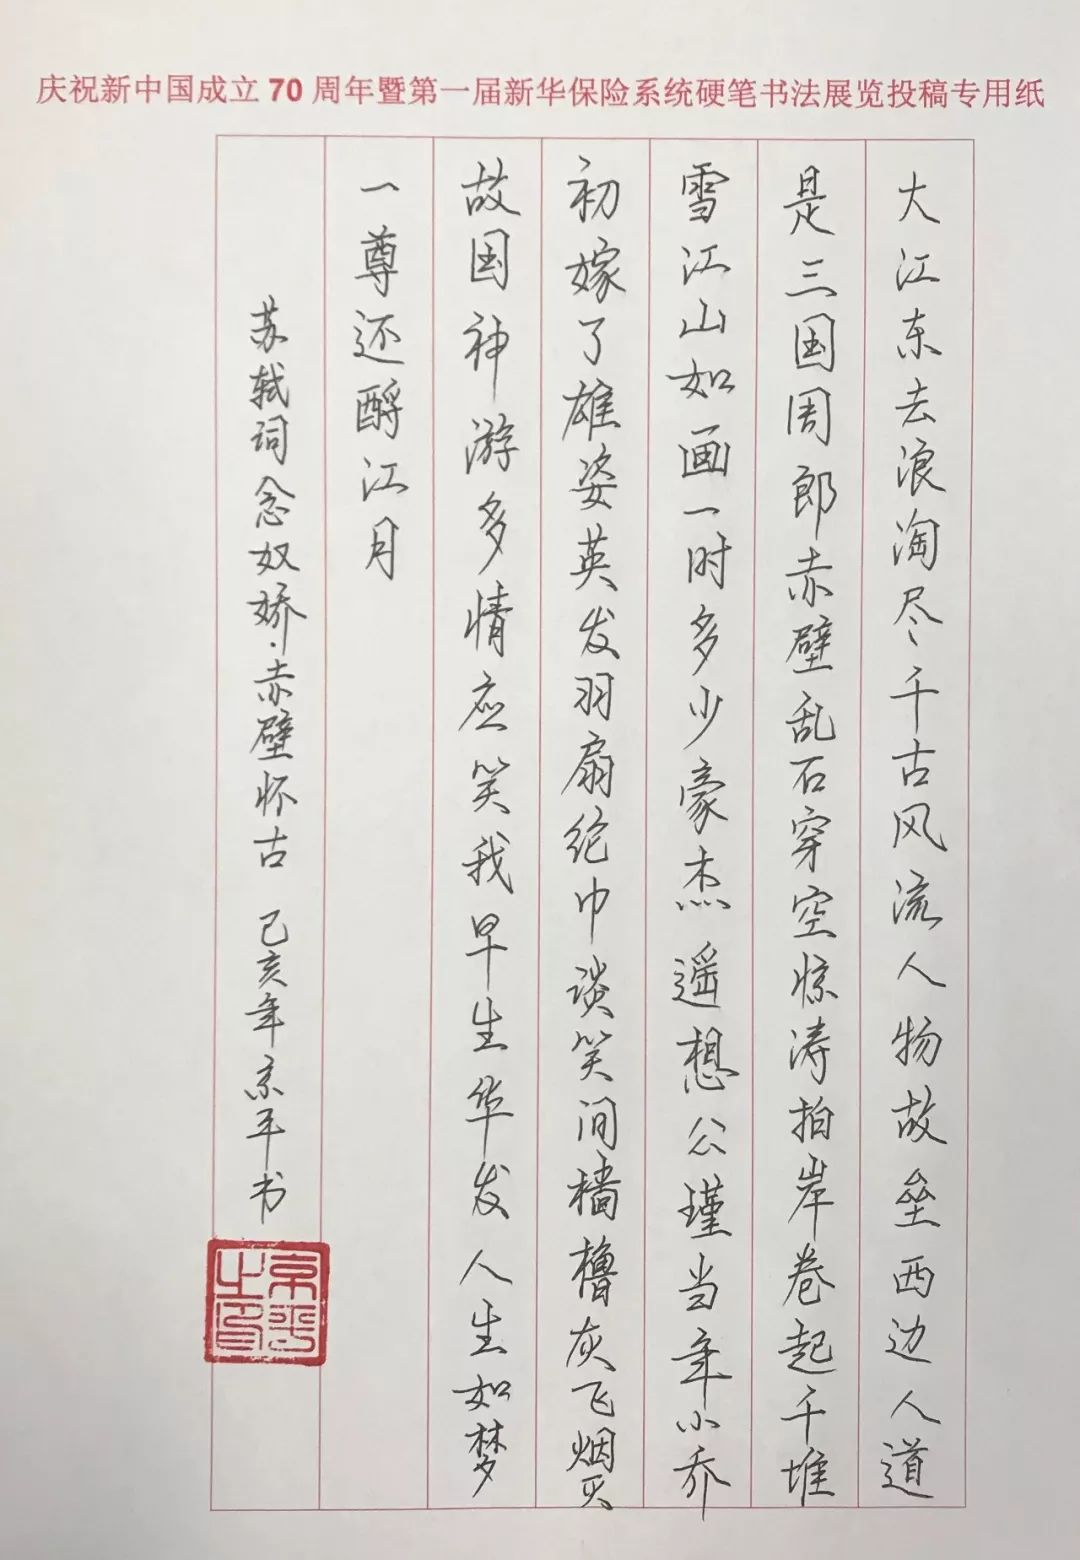 庆祝新中国成立70周年暨第一届新华保险系统硬笔书法展览投稿专用纸
大江东去浪淘尽千古风流人物故垒西边人道
是三国周郎赤壁乱石穿空惊涛拍岸卷起千堆
雪江山如画一时多少豪杰遥想公瑾当年小乔
初嫁了雄姿英发羽扇纶巾谈笑间樯橹灰飞烟灭
故国神游多情应笑我早生华发人生如梦
一尊还酹江月
苏轼词念奴娇·赤壁怀古 己亥年京平书
京平之印